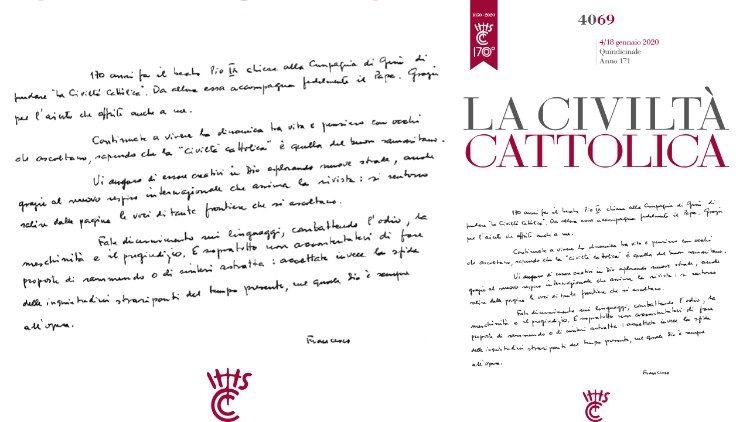 170 anni fa il beato Pio IX chiese alla Compagnia di Gesù di
fondare "La Civiltà Cattolica". Da allora essa accompagna fedelmente il Papa. Grazie
per l'aiuto che offrite anche a me.
Continuate a vivere la dinamica tra vita e pensiero con occhi
che ascoltano, sapendo che la "Civiltà Cattolica" è quella del buon samaritano.
Vi auguro di essere creativi in Dio esplorando nuove strade, anche
grazie al nuovo respiro internazionale che anima la rivista: si sentono
salire dalle pagine le voci di tante frontiere che si ascoltano.
Fate discernimento sui linguaggi, combattendo l'odio, la
meschinità e il pregiudizio. E soprattutto non accontentatevi di fare
proposte di rammendo o di sintesi astratta: accettate invece la sfida
delle inquietudini straripanti del tempo presente, nel quale Dio è sempre
all'opera.
Francesco
1850-2020
170°
4069
4/18 gennaio 2020
Quindicinale
Anno 171
LA CIVILTÀ
CATTOLICA
170 anni fa il beato Pio IX chiese alla Compagnia di Gesù di
fondare "La Civiltà Cattolica". Da allora essa accompagna fedelmente il Papa. Grazie
per l'aiuto che offrite anche a me.
Continuate a vivere la dinamica tra vita e pensiero con occhi
che ascoltano, sapendo che la "Civiltà Cattolica" è quella del buon samaritano.
Vi auguro di essere creativi in Dio esplorando nuove strade, anche
grazie al nuovo respiro internazionale che anima la rivista: si sentono
salire dalle pagine le voci di tante frontiere che si ascoltano.
Fate discernimento sui linguaggi, combattendo l'odio, la
meschinità e il pregiudizio. E soprattutto non accontentatevi di fare
proposte di rammendo o di sintesi astratta: accettate invece la sfida
delle inquietudini straripanti del tempo presente, nel quale Dio è sempre
all'opera.
Francesco